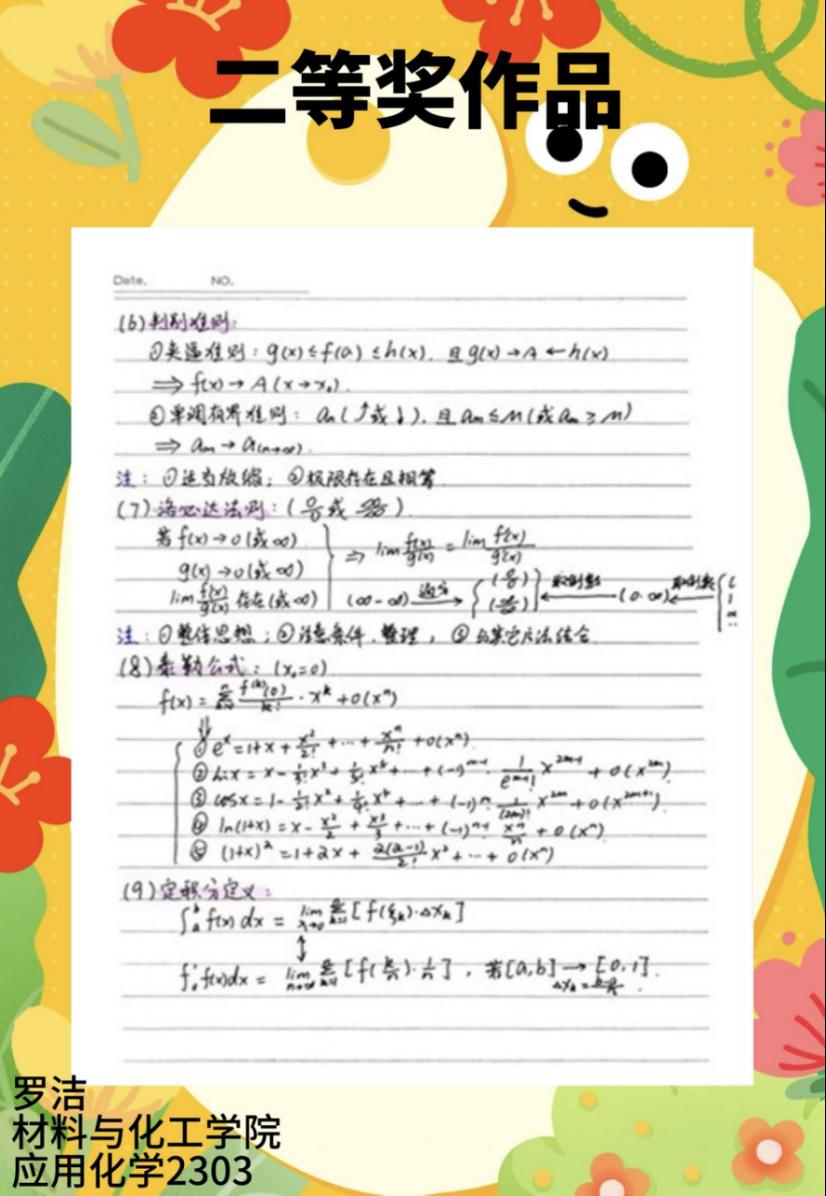 二等奖作品
Date. NO.
(6) 判别准则:
①夹逼准则: g(x) ≤ f(a) ≤ h(x). 且 g(x) → A ← h(x)
⇒ f(x) → A (x→x₀).
②单调有界准则: aₙ (↑或↓), 且 aₘ ≤ M (或 aₘ ≥ M)
⇒ aₘ → a(n→∞).
注: ①适当放缩; ②极限存在且相等
(7) 洛必达法则: (0/0 或 ∞/∞)
若 f(x) → 0 (或∞)
g(x) → 0 (或∞)
lim f(x)/g(x) 存在 (或∞)
⇒ lim f(x)/g(x) = lim f(x)/g(x)
(∞-∞) 通分 → { (0/0) (∞/∞) } ← 取倒数 (0·∞) ←
注: ①整体思想; ②注意条件、整理, ③与其它方法结合
(8) 泰勒公式: (x₀=0)
f(x) = Σ f⁽ᵏ⁾(0)/k! · xᵏ + o(xⁿ)
⇓
① eˣ = 1+x+ x²/2! + ··· + xⁿ/n! + o(xⁿ).
② sin x = x - 1/3! x³ + 1/5! x⁵ + ··· + (-1)ᵐ⁻¹ · x²ᵐ⁻¹ + o(x²ᵐ).
③ cosx = 1- 1/2! x² + 1/4! x⁴ + ··· + (-1)ᵐ 1/(2m)! x²ᵐ + o(x²ᵐ⁺¹).
④ ln(1+x) = x - x²/2 + x³/3 + ··· + (-1)ⁿ⁻¹ xⁿ/n + o(xⁿ)
⑤ (1+x)ᵅ = 1+αx + α(α-1)/2! x² + ··· + o(xⁿ)
(9) 定积分定义:
∫ₐᵇ f(x) dx = lim λ→0 Σ [f(ξₖ)·Δxₖ]
↕
∫₀¹ f(x)dx = lim n→∞ Σ [f(k/n)·1/n], 若[a,b] → [0,1].
Δxₖ = b-a/n
罗洁
材料与化工学院
应用化学2303